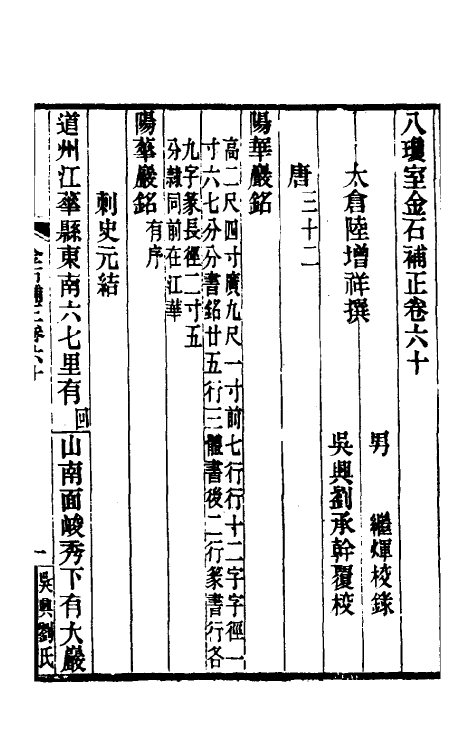 八瓊室金石補正卷六十
男　繼煇校錄
太倉陸增祥撰
吳興劉承幹覆校
唐三十二
陽華巖銘
高二尺四寸廣九尺一寸前七行行十二字字徑一
寸六七分分書銘廿五行三體書後二行篆書行各
九字篆長徑二寸五
分隸同前在江華
陽華巖銘有序
刺史元結
道州江華縣東南六七里有回山南面峻秀下有大巖
金石補正卷六十
一
吳興劉氏